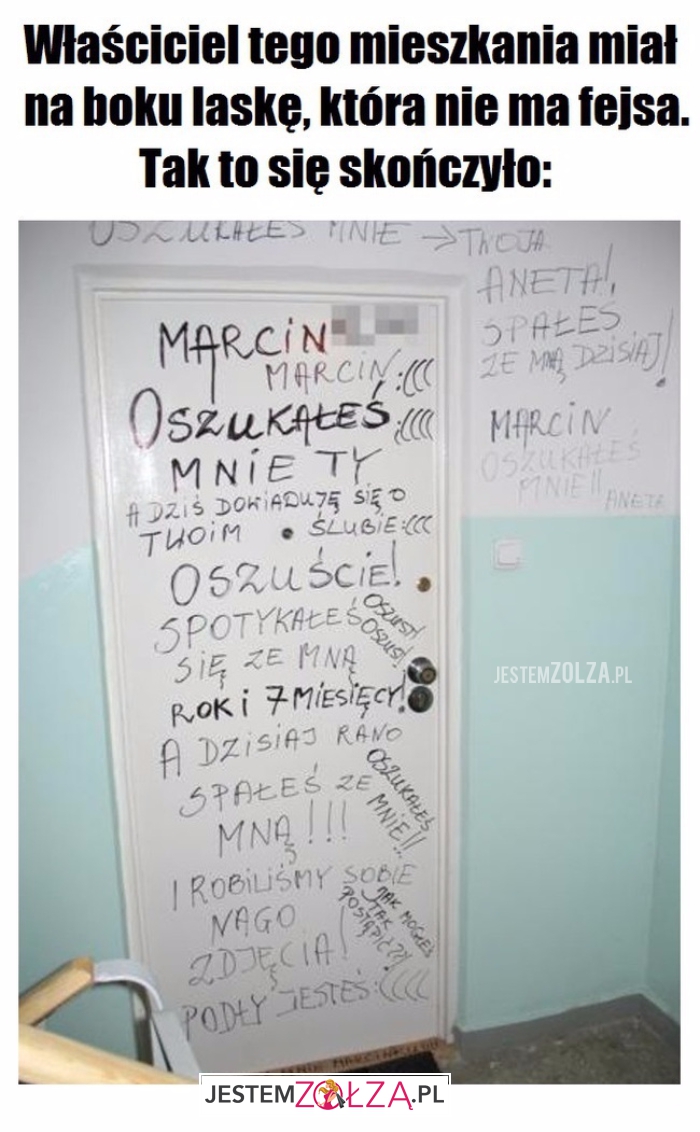 Właściciel tego mieszkania miał
na boku laskę, która nie ma fejsa.
Tak to się skończyło:
OSZUKAŁEŚ MNIE → TWOJA
ANETA!,
SPAŁEŚ
ZE MNĄ DZISIAJ!
MARCIN
OSZUKAŁEŚ
MNIE!! ANETA
MARCiN
MARCiN :(((
OSZUKAŁEŚ :((((
MNIE TY
A DZIŚ DOWIADUJĘ SIĘ O
TWOIM ŚLUBIE :(((
OSZUŚCIE!
SPOTYKAŁEŚ
OSZUST!
OSZUST!
SIĘ ZE MNĄ
ROK i 7 MIESIĘCY!
A DZISIAJ RANO
SPAŁEŚ ZE
MNĄ!!!
OSZUKAŁEŚ
MNIE!!
I ROBILIŚMY SOBIE
NAGO
ZDJĘCIA!
JAK MOGŁEŚ
TAK
POSTĄPIĆ??!
PODŁY JESTEŚ :((((
JESTEMZOLZA.PL
JESTEMZOŁZĄ.PL